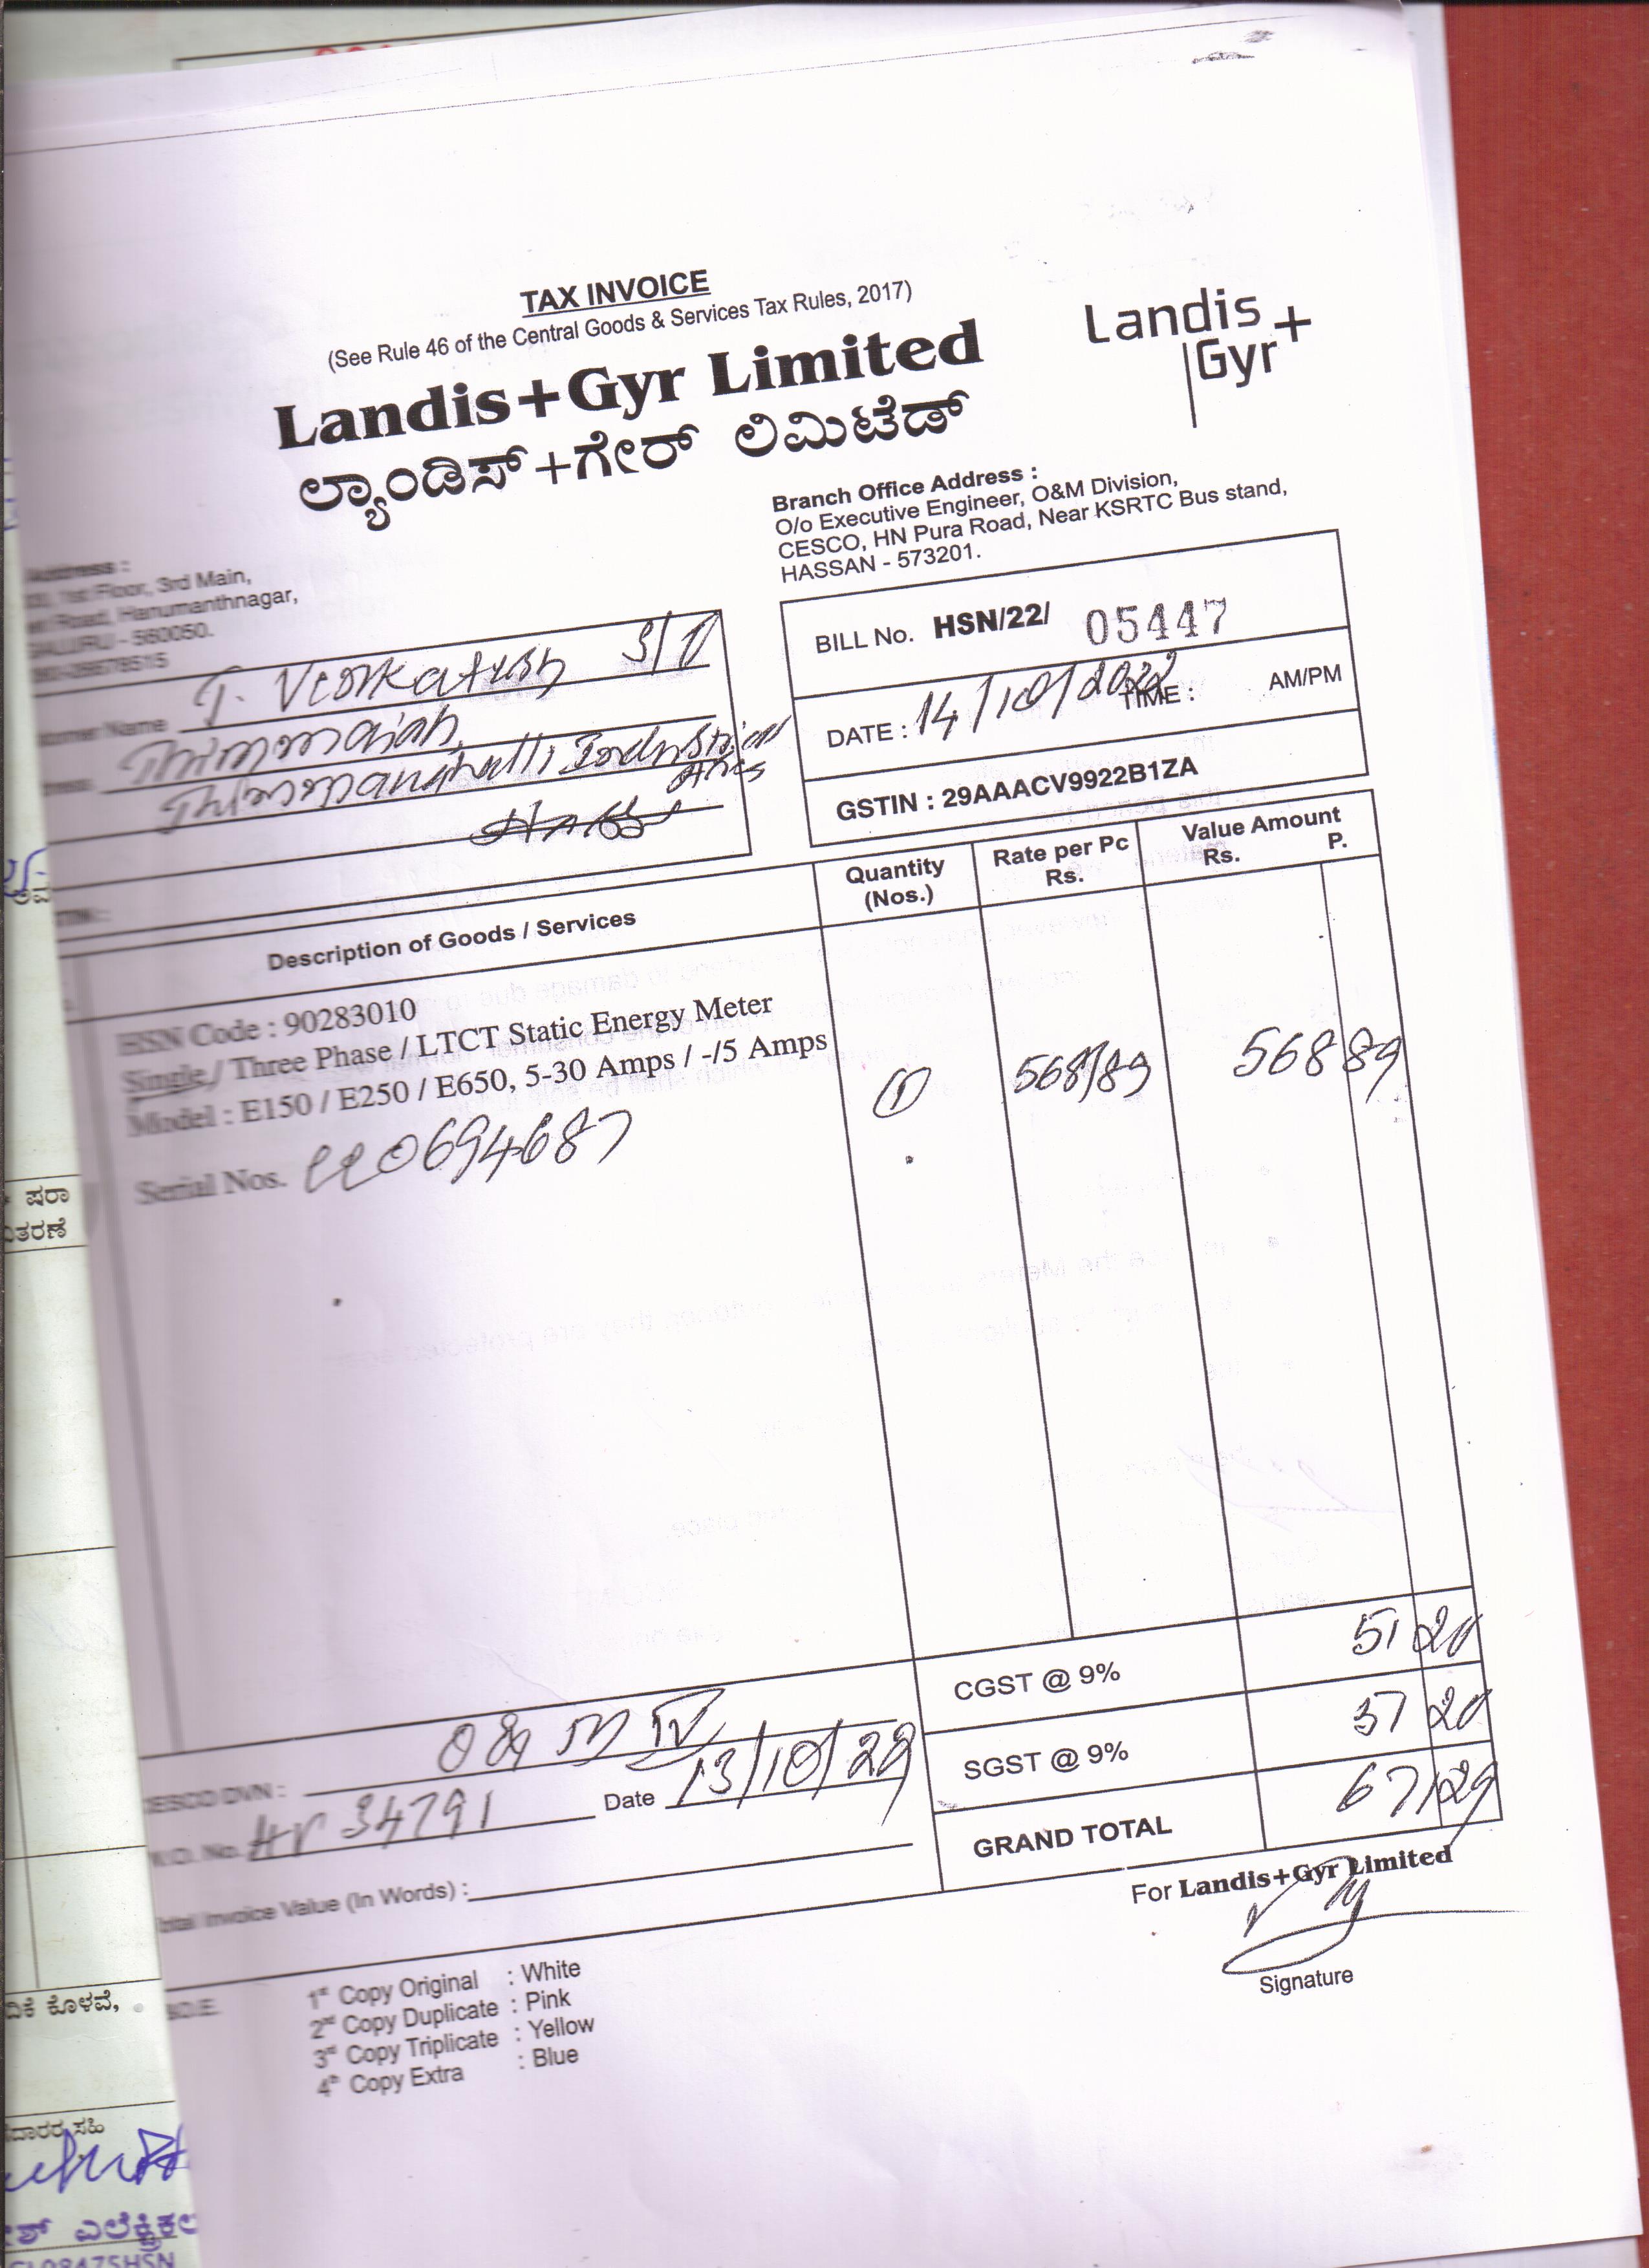 TAX INVOICE
(See Rule 46 of the Central Goods & Services Tax Rules, 2017)
Landis+Gyr Limited
ಲ್ಯಾಂಡಿಸ್+ಗೇರ್ ಲಿಮಿಟೆಡ್
Landis
Gyr+
Address :
1st Floor, 3rd Main,
Road, Hanumanthnagar,
- 560050.
Branch Office Address :
O/o Executive Engineer, O&M Division,
CESCO, HN Pura Road, Near KSRTC Bus stand,
HASSAN - 573201.
Name T. Venkatesh S/O
Thimmaiah
Industrial
BILL No. HSN/22/ 05447
DATE : 14/10/2022 TIME : AM/PM
GSTIN : 29AAACV9922B1ZA
Description of Goods / Services
Quantity (Nos.)
Rate per Pc Rs.
Value Amount Rs. P.
HSN Code : 90283010
Single / Three Phase / LTCT Static Energy Meter
Model : E150 / E250 / E650, 5-30 Amps / -/5 Amps
1 568/89 568 89
Serial Nos. 0694687
CGST @ 9% 51 20
SGST @ 9% 51 20
GRAND TOTAL 671 29
DVN : O & M IV
No. 34791 Date 13/10/22
Invoice Value (In Words) :
For Landis+Gyr Limited
Signature
1st Copy Original : White
2nd Copy Duplicate : Pink
3rd Copy Triplicate : Yellow
4th Copy Extra : Blue
ಷರಾ
ಕೊಳವೆ,
ಸಹಿ